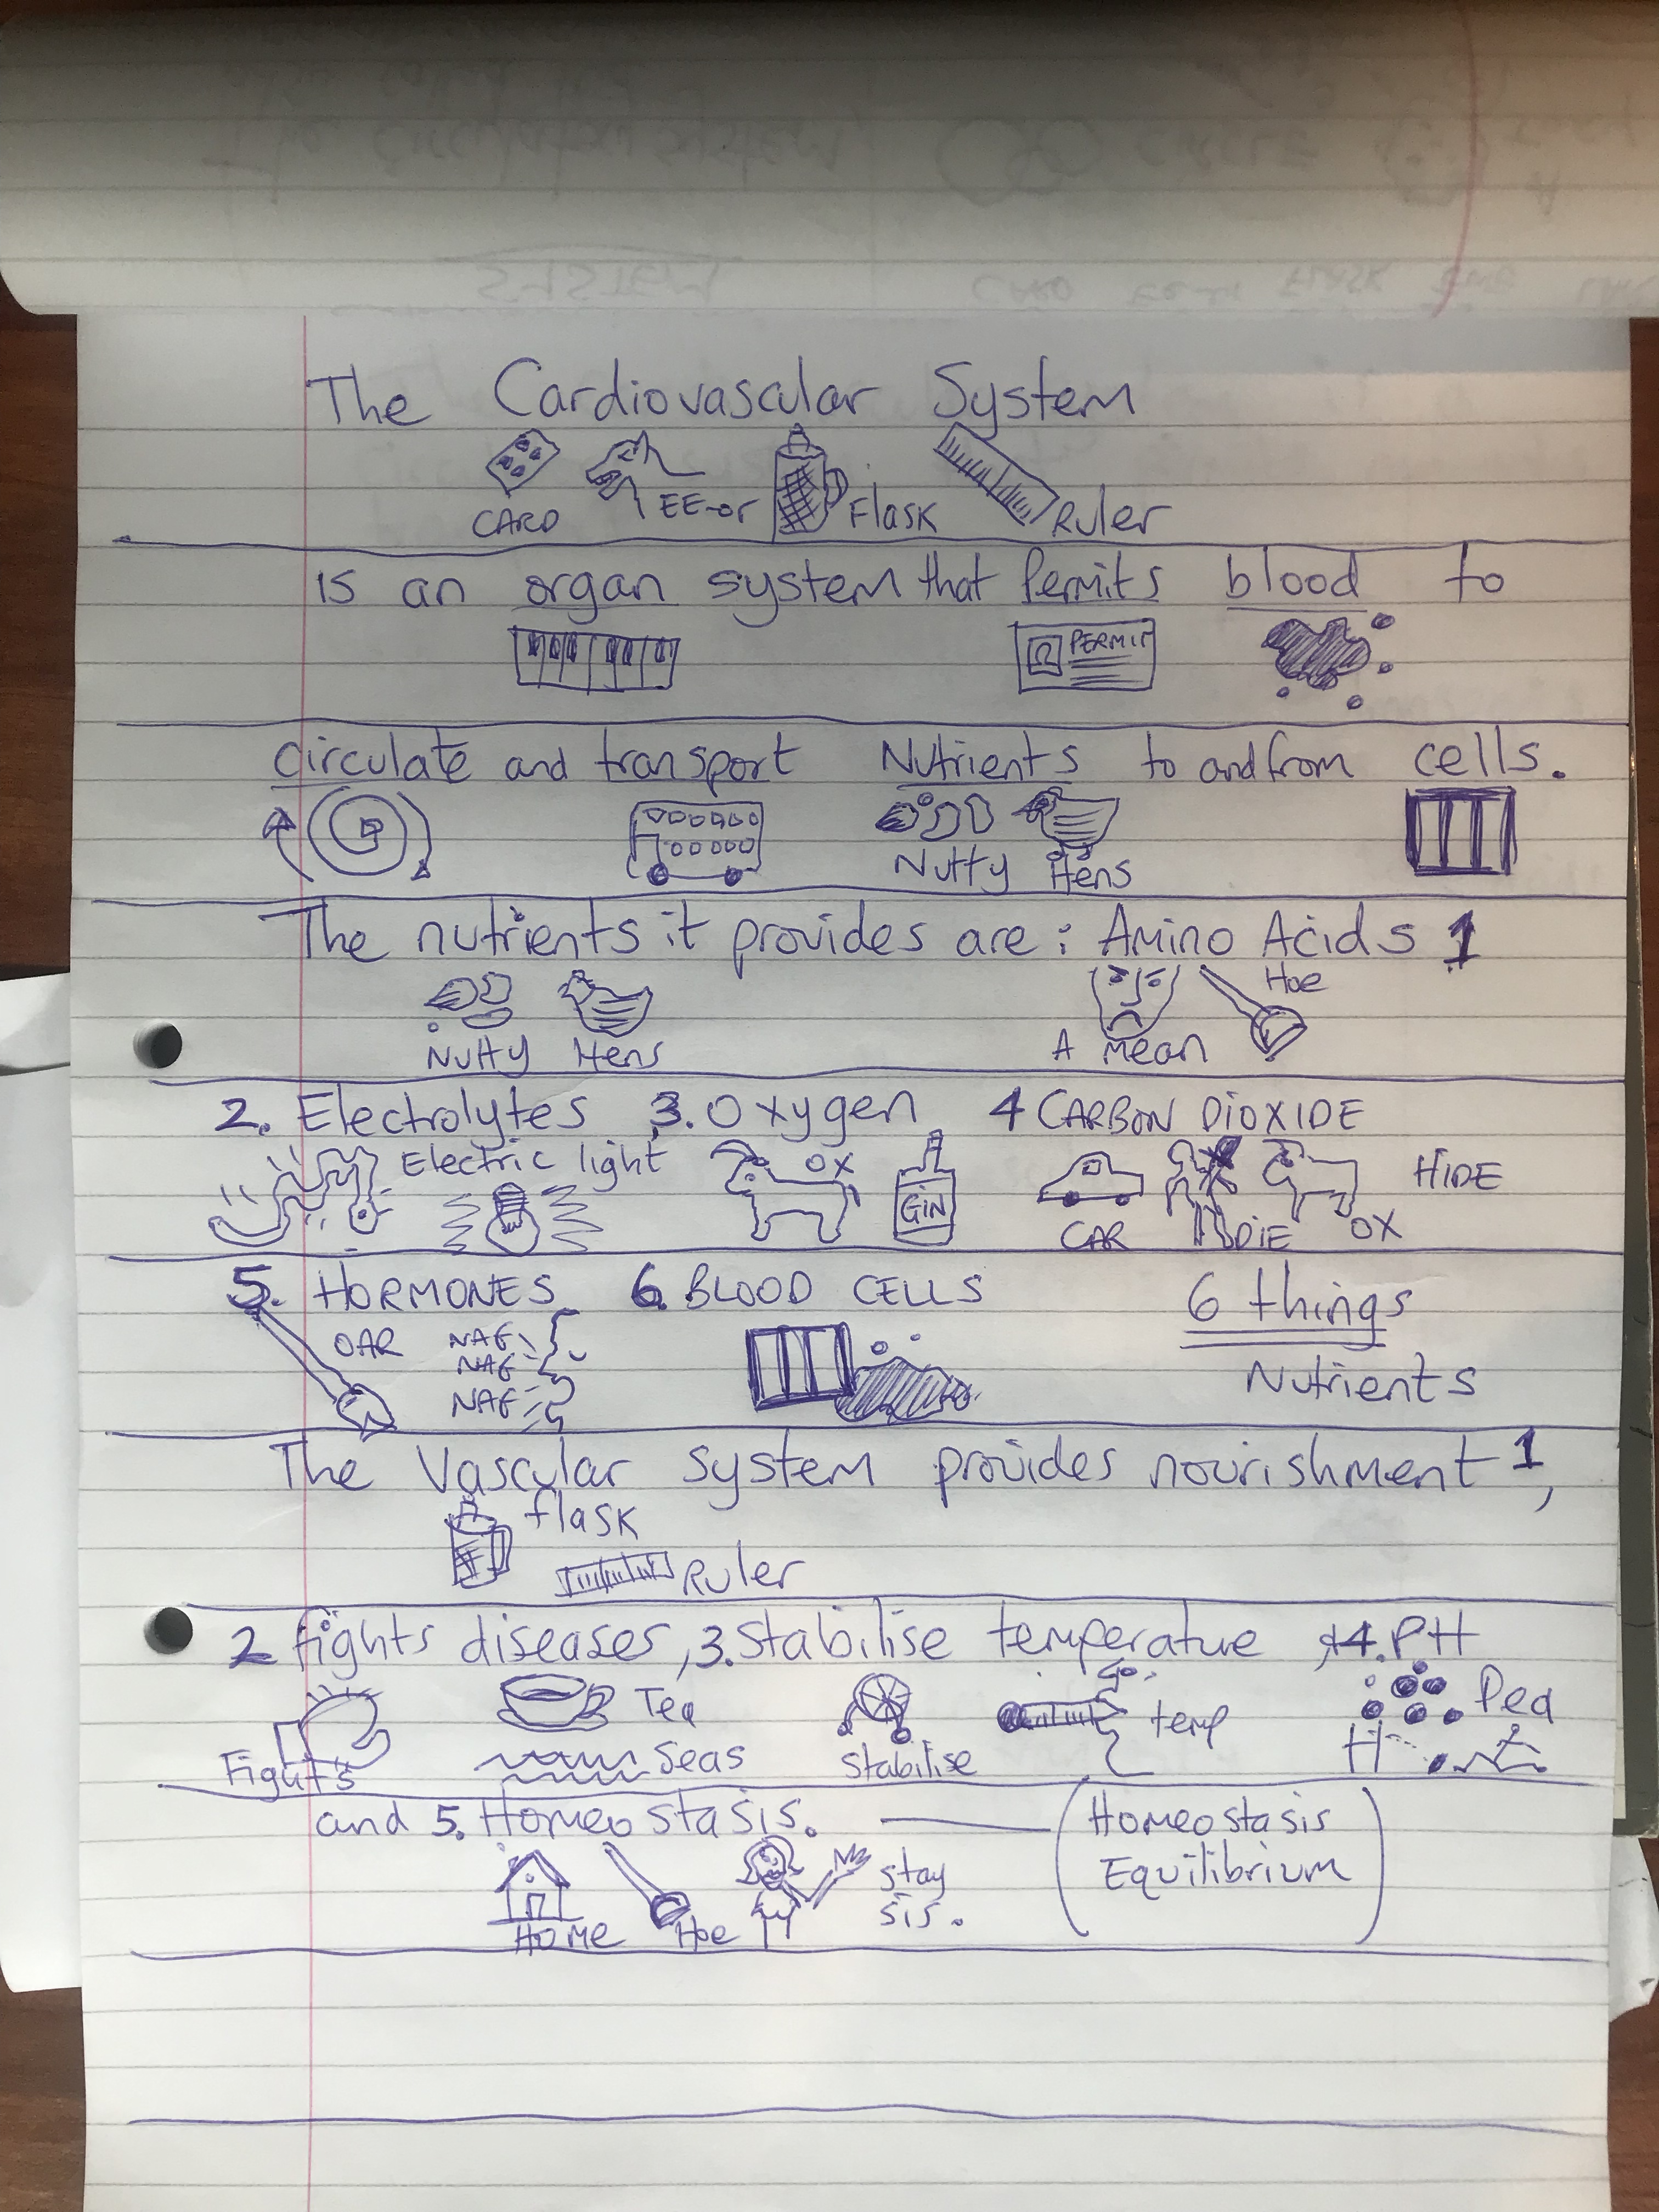 The Cardiovascular System
CARD EE-or Flask Ruler
is an organ system that Permits blood to
PERMIT
circulate and transport Nutrients to and from cells.
Nutty Hens
The nutrients it provides are : Amino Acids 1
Hoe
Nutty Hens A Mean
2. Electrolytes 3. Oxygen 4 CARBON DIOXIDE
Electric light OX GIN CAR DIE OX HIDE
5. HORMONES 6. BLOOD CELLS 6 things
OAR NAG
NAG
NAG
Nutrients
The Vascular System provides nourishment 1,
flask
Ruler
2 fights diseases, 3. Stabilise temperature, &4. PH
Tea temp Pea
Fights Seas Stabilise H
and 5. Homeostasis. (Homeostasis
Equilibrium)
stay
sis.
HOME Hoe